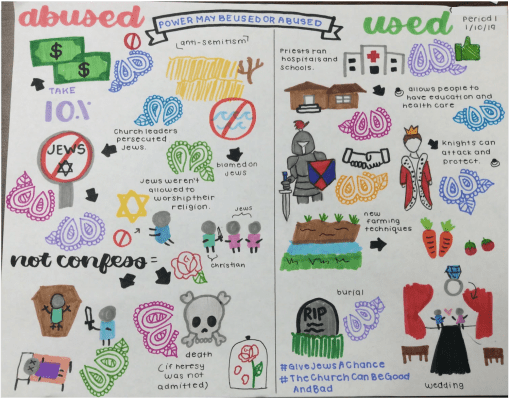 abused
POWER MAY BE USED OR ABUSED
used
Period 1
1/10/19
$
$
TAKE
10%
(anti-semitism)
JEWS
Church leaders
persecuted
Jews.
blamed on
Jews
Jews weren't
allowed to
worship their
religion.
Jews
christian
not confess=
death
(if heresy
was not
admitted)
Priests ran
hospitals and
schools.
allows people to
have education and
health care
Knights can
attack and
protect.
new
farming
techniques
burial
RIP
#GiveJewsAChance
#TheChurchCanBeGood
AndBad
wedding